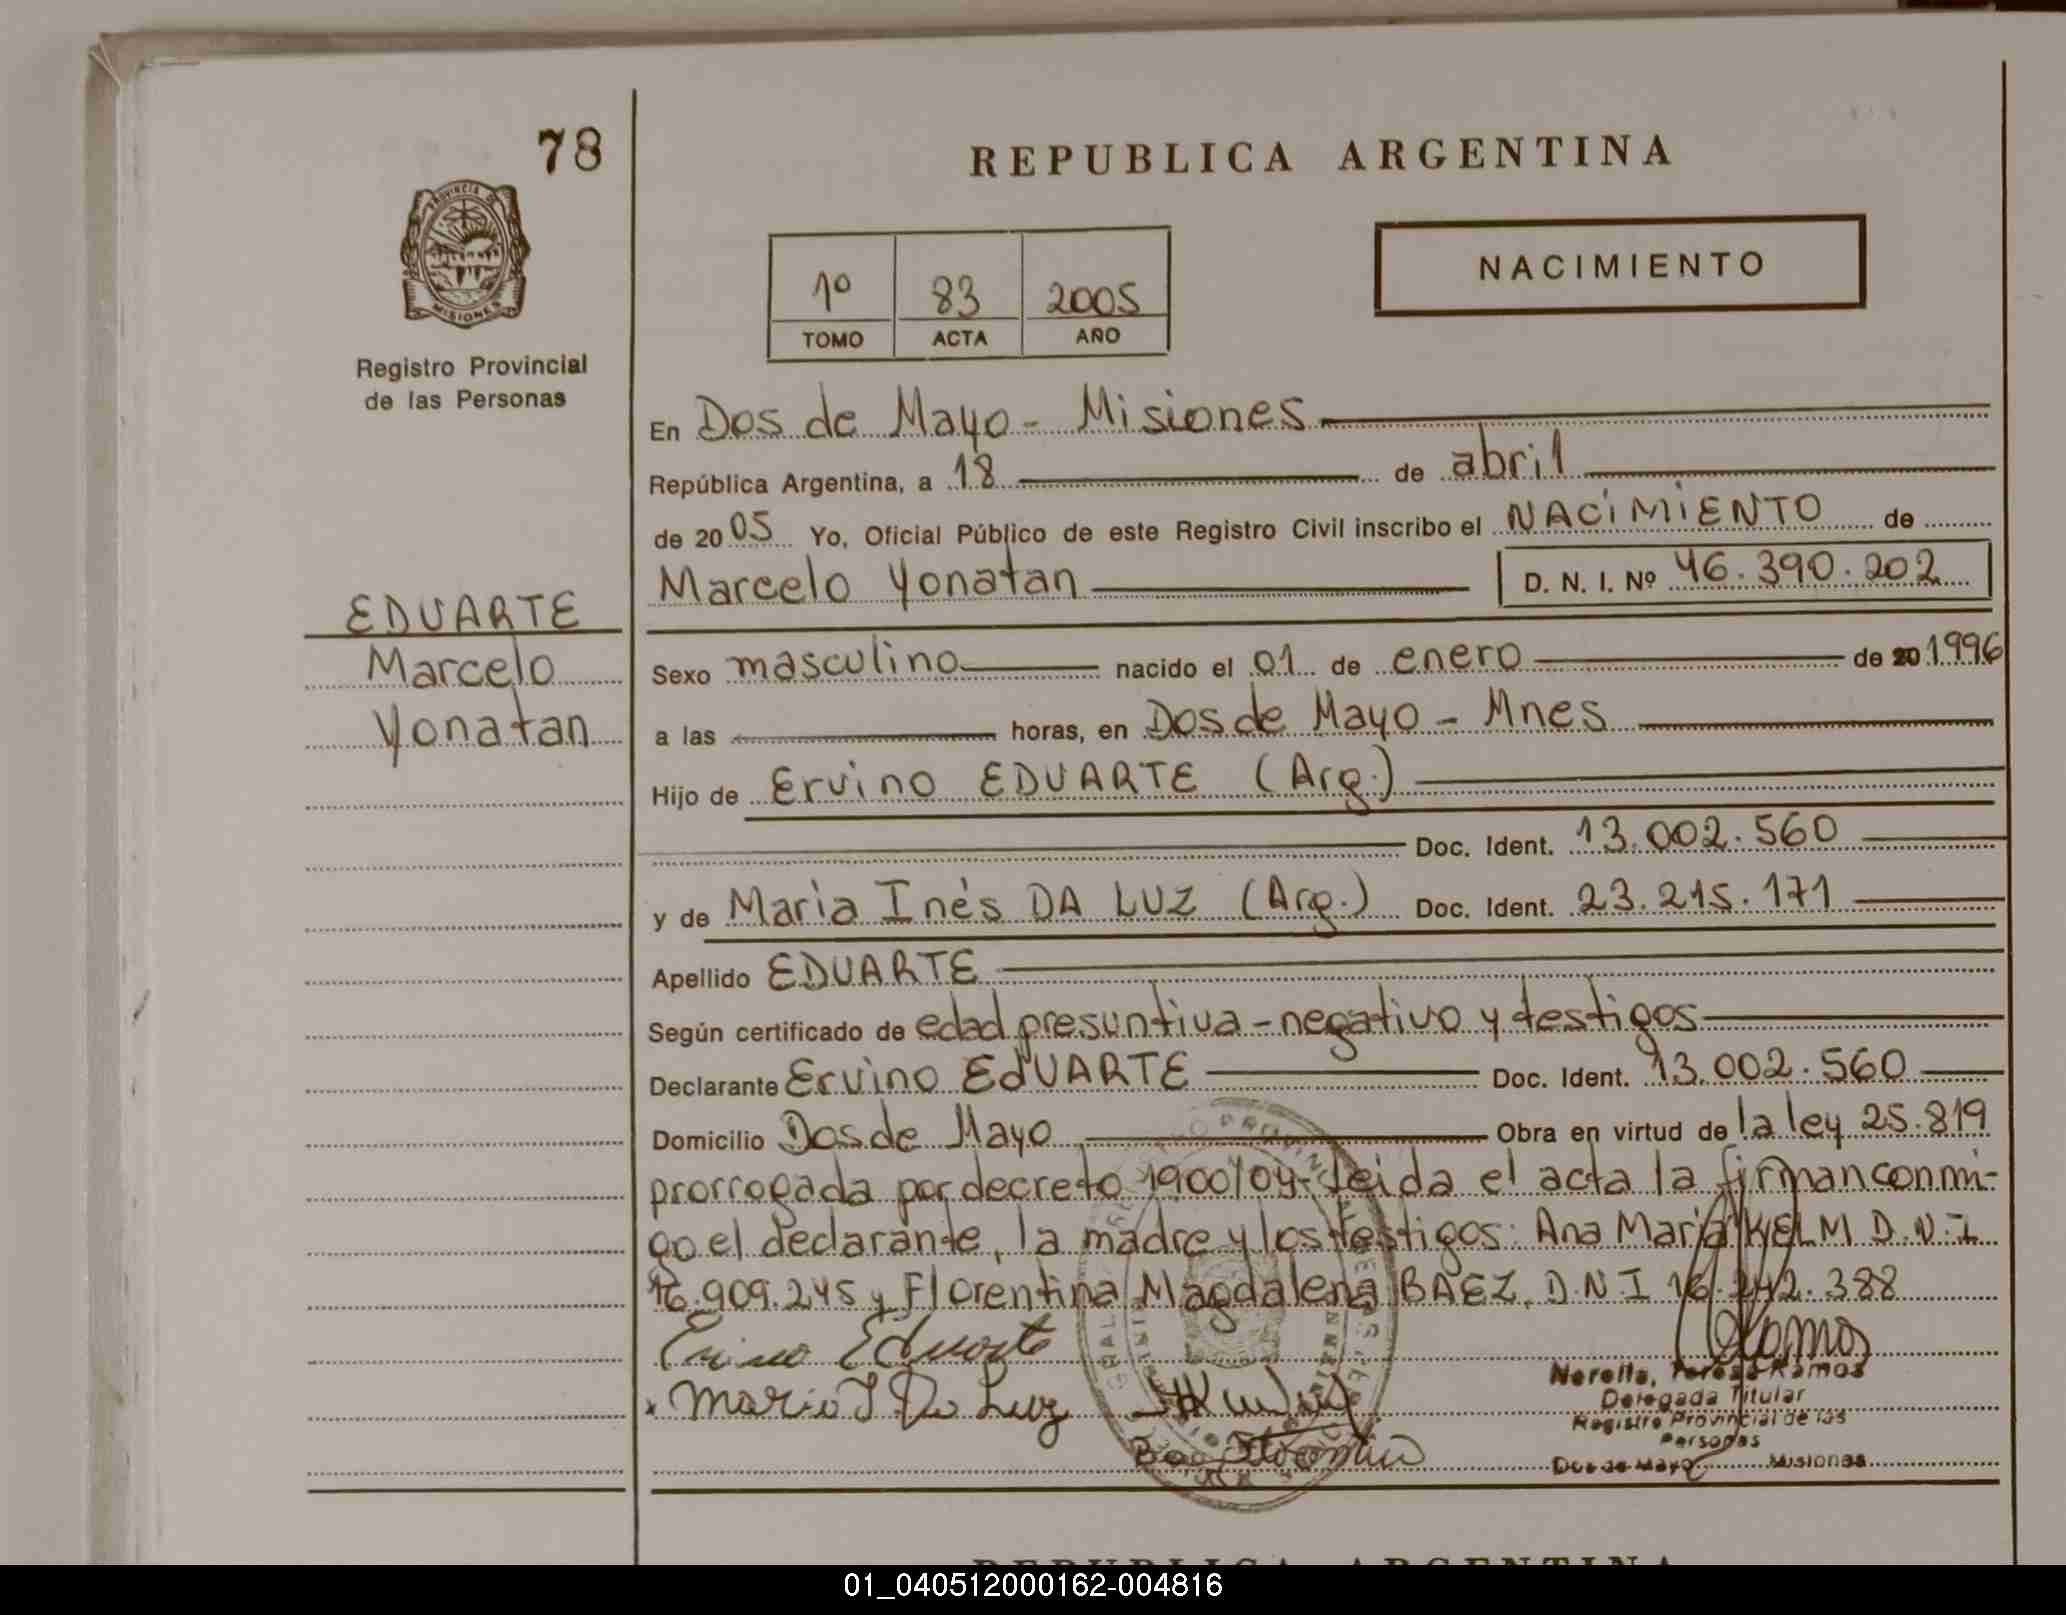 78
PROVINCIA DE
MISIONES
Registro Provincial
de las Personas
REPUBLICA ARGENTINA
1º 83 2005
TOMO ACTA AÑO
NACIMIENTO
En Dos de Mayo - Misiones
República Argentina, a 18 de abril
de 2005 Yo, Oficial Público de este Registro Civil inscribo el NACIMIENTO de
Marcelo Yonatan D. N. I. Nº 46.390.202
EDUARTE
Marcelo
Yonatan
Sexo masculino nacido el 01 de enero de 20 1996
a las horas, en Dos de Mayo - Mnes
Hijo de Ervino EDUARTE (Arg.)
Doc. Ident. 13.002.560
y de Maria Inés DA LUZ (Arg.) Doc. Ident. 23.215.171
Apellido EDUARTE
Según certificado de edad presuntiva - negativo y testigos
Declarante Ervino EdUARTE Doc. Ident. 13.002.560
Domicilio Dos de Mayo Obra en virtud de la ley 25.819
prorrogada por decreto 1900/04- Leida el acta la firman conmi-
go el declarante, la madre y los testigos: Ana Maria KELM D.N.I
16.909.245 y Florentina Magdalena BAEZ. D.N.I 16.242.388
Ervino Eduarte
x Maria I Da Luz
Ramos
Nerella, Teresa Ramos
Delegada Titular
Registro Provincial de las
Personas
Dos de Mayo Misiones
REPUBLICA ARGENTINA
01_040512000162-004816